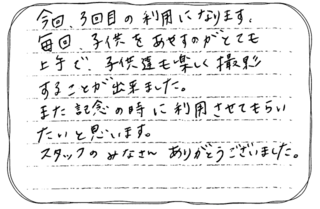 今回、3回目の利用になります。
毎回、子供をあやすのがとても
上手で、子供達も楽しく撮影
することが出来ました。
また記念の時に利用させてもらい
たいと思います。
スタッフのみなさん ありがとうございました。